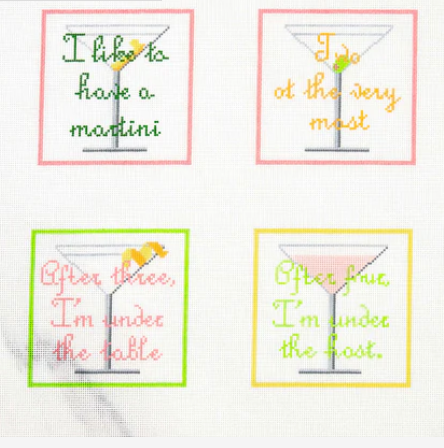 I like to
have a
martini
Two
at the very
most
After three,
I'm under
the table
After four,
I'm under
the host.